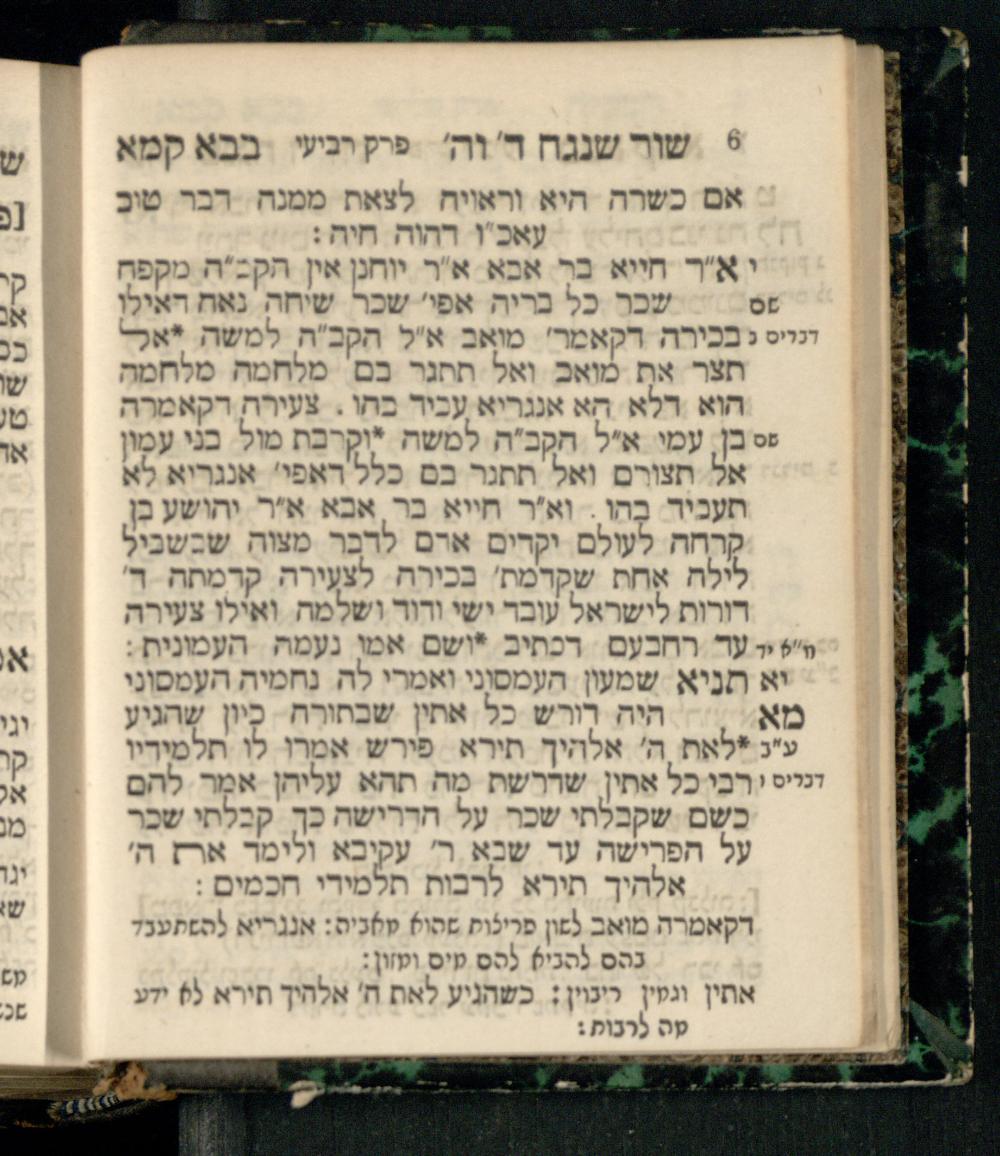 6 שור שנגח ד׳ וה׳ פרק רביעי בבא קמא
אם כשרה היא וראויה לצאת ממנה דבר טוב
עאכ״ו דהוה חיה :
י א״ר חייא בר אבא א״ר יוחנן אין הקב״ה מקפח
שם שכר כל בריה אפי׳ שכר שיחה נאה דאילו
דברים ב בכירה דקאמר׳ מואב א״ל הקב״ה למשה *אל
תצר את מואב ואל תתגר בם מלחמה מלחמה
הוא דלא הא אנגריא עביד בהו . צעירה דקאמרה
שם בן עמי א״ל הקב״ה למשה *וקרבת מול בני עמון
אל תצורם ואל תתגר בם כלל דאפי׳ אנגריא לא
תעביד בהו . וא״ר חייא בר אבא א״ר יהושע בן
קרחה לעולם יקדים אדם לדבר מצוה שבשביל
לילה אחת שקדמת׳ בכירה לצעירה קדמתה ד׳
דורות לישראל עובד ישי ודוד ושלמה ואילו צעירה
מ״א יד עד רחבעם דכתיב *ושם אמו נעמה העמונית :
יא תניא שמעון העמסוני ואמרי לה נחמיה העמסוני
מא היה דורש כל אתין שבתורה כיון שהגיע
ע״ב *לאת ה׳ אלהיך תירא פירש אמרו לו תלמידיו
דברים ו רבי כל אתין שדרשת מה תהא עליהן אמר להם
כשם שקבלתי שכר על הדרישה כך קבלתי שכר
על הפרישה עד שבא ר׳ עקיבא ולימד את ה׳
אלהיך תירא לרבות תלמידי חכמים :
דקאמרה מואב לשון פריצות שהוא מאביה: אנגריא להשתעבד
בהם להביא להם מים ומזון:
אתין וגמין ריבוין: כשהגיע לאת ה׳ אלהיך תירא לא ידע
מה לרבות: